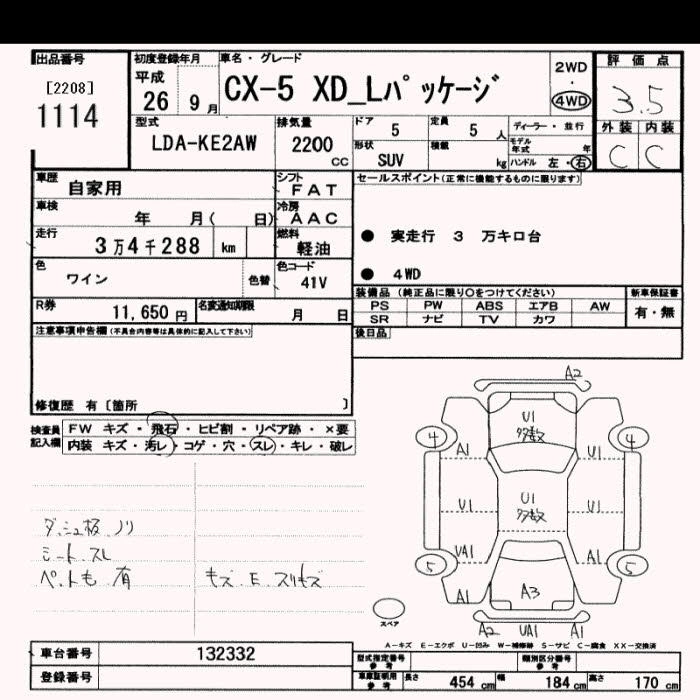 出品番号
[2208]
1114
初度登録年月
平成
26 9月
車名・グレード
CX-5 XD_Lパッケージ
2WD
・
4WD
評価点
3.5
外装 内装
C C
型式
LDA-KE2AW
排気量
2200
CC
ドア 5
定員 5 人
形状 SUV
積載 kg
ディーラー・並行
モデル年式 年
ハンドル 左・右
車歴 自家用
シフト FAT
車検 年 月( 日)
冷房 AAC
走行 3万4千288 km
燃料 軽油
色 ワイン
色替
色コード 41V
R券 11,650 円
名変通知期限 月 日
セールスポイント(正常に機能するものに限ります)
● 実走行 3 万キロ台
● 4WD
装備品(純正品に限り○をつけてください)
新車保証書
PS PW ABS エアB AW
SR ナビ TV カワ
有・無
後日品
注意事項申告欄(不具合内容等は具体的に記入して下さい)
修復歴 有〔箇所 〕
検査員記入欄
FW キズ・飛石・ヒビ割・リペア跡・×要
内装 キズ・汚レ・コゲ・穴・スレ・キレ・破レ
ダッシュ板 ノリ
シート スレ
ペット毛 有
キズ E スリキズ
A2
U1
多数
4 4
A1 U1
U1 U1 U1
多数
UA1 A1
5 5
A1 A3
スペア
A2 UA1 A1
A-キズ E-エクボ U-凹み W-補修跡 S-サビ C-腐食 XX-交換済
車台番号 132332
登録番号
型式指定番号 参考
類別区分番号 参考
車庫証明用 参考
長さ 454 cm
幅 184 cm
高さ 170 cm